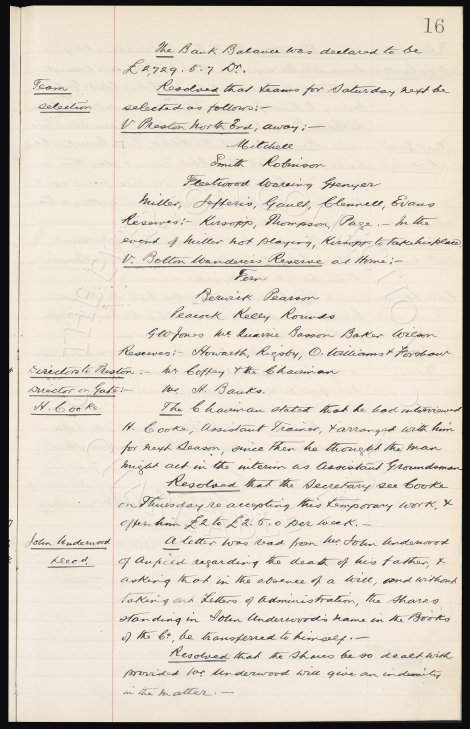 16
The Bank Balance was declared to be
£2,729. 5. 7 Dr.
Team Resolved that teams for Saturday next be
selection selected as follows:-
V Preston North End, away:-
Mitchell
Smith Robinson
Fleetwood Wareing Grenyer
Miller, Jefferis, Gault, Clennell, Evans
Reserves:- Kirsopp, Thompson, Page. - In the
event of Miller not playing, Kirsopp to take his place
V. Bolton Wanderers Reserve at Home:-
Fern
Berwick Pearson
Peacock Kelly Rounds
G W Jones McQuarrie Basson Baker Wilson
Reserves:- Howarth, Rigsby, O. Williams & Forshaw
Directors to Preston:- Mr Coffey & the Chairman
Director on Gate:- Mr. H. Banks.
H. Cooke The Chairman stated that he had interviewed
H. Cooke, Assistant Trainer, & arranged with him
for next season, since then he thought the man
might act in the interim as Assistant Groundsman
Resolved that the Secretary see Cooke
on Thursday re accepting this temporary work, &
offer him £2 to £2. 5. 0 per week. -
John Underwood A letter was read from Mr. John Underwood
Decd. of Anfield regarding the death of his father, &
asking that in the absence of a Will, and without
taking out Letters of Administration, the shares
standing in John Underwood's name in the Books
of the Co, be transferred to himself. -
Resolved that the shares be so dealt with
provided Mr. Underwood will give an indemnity
in the matter. -